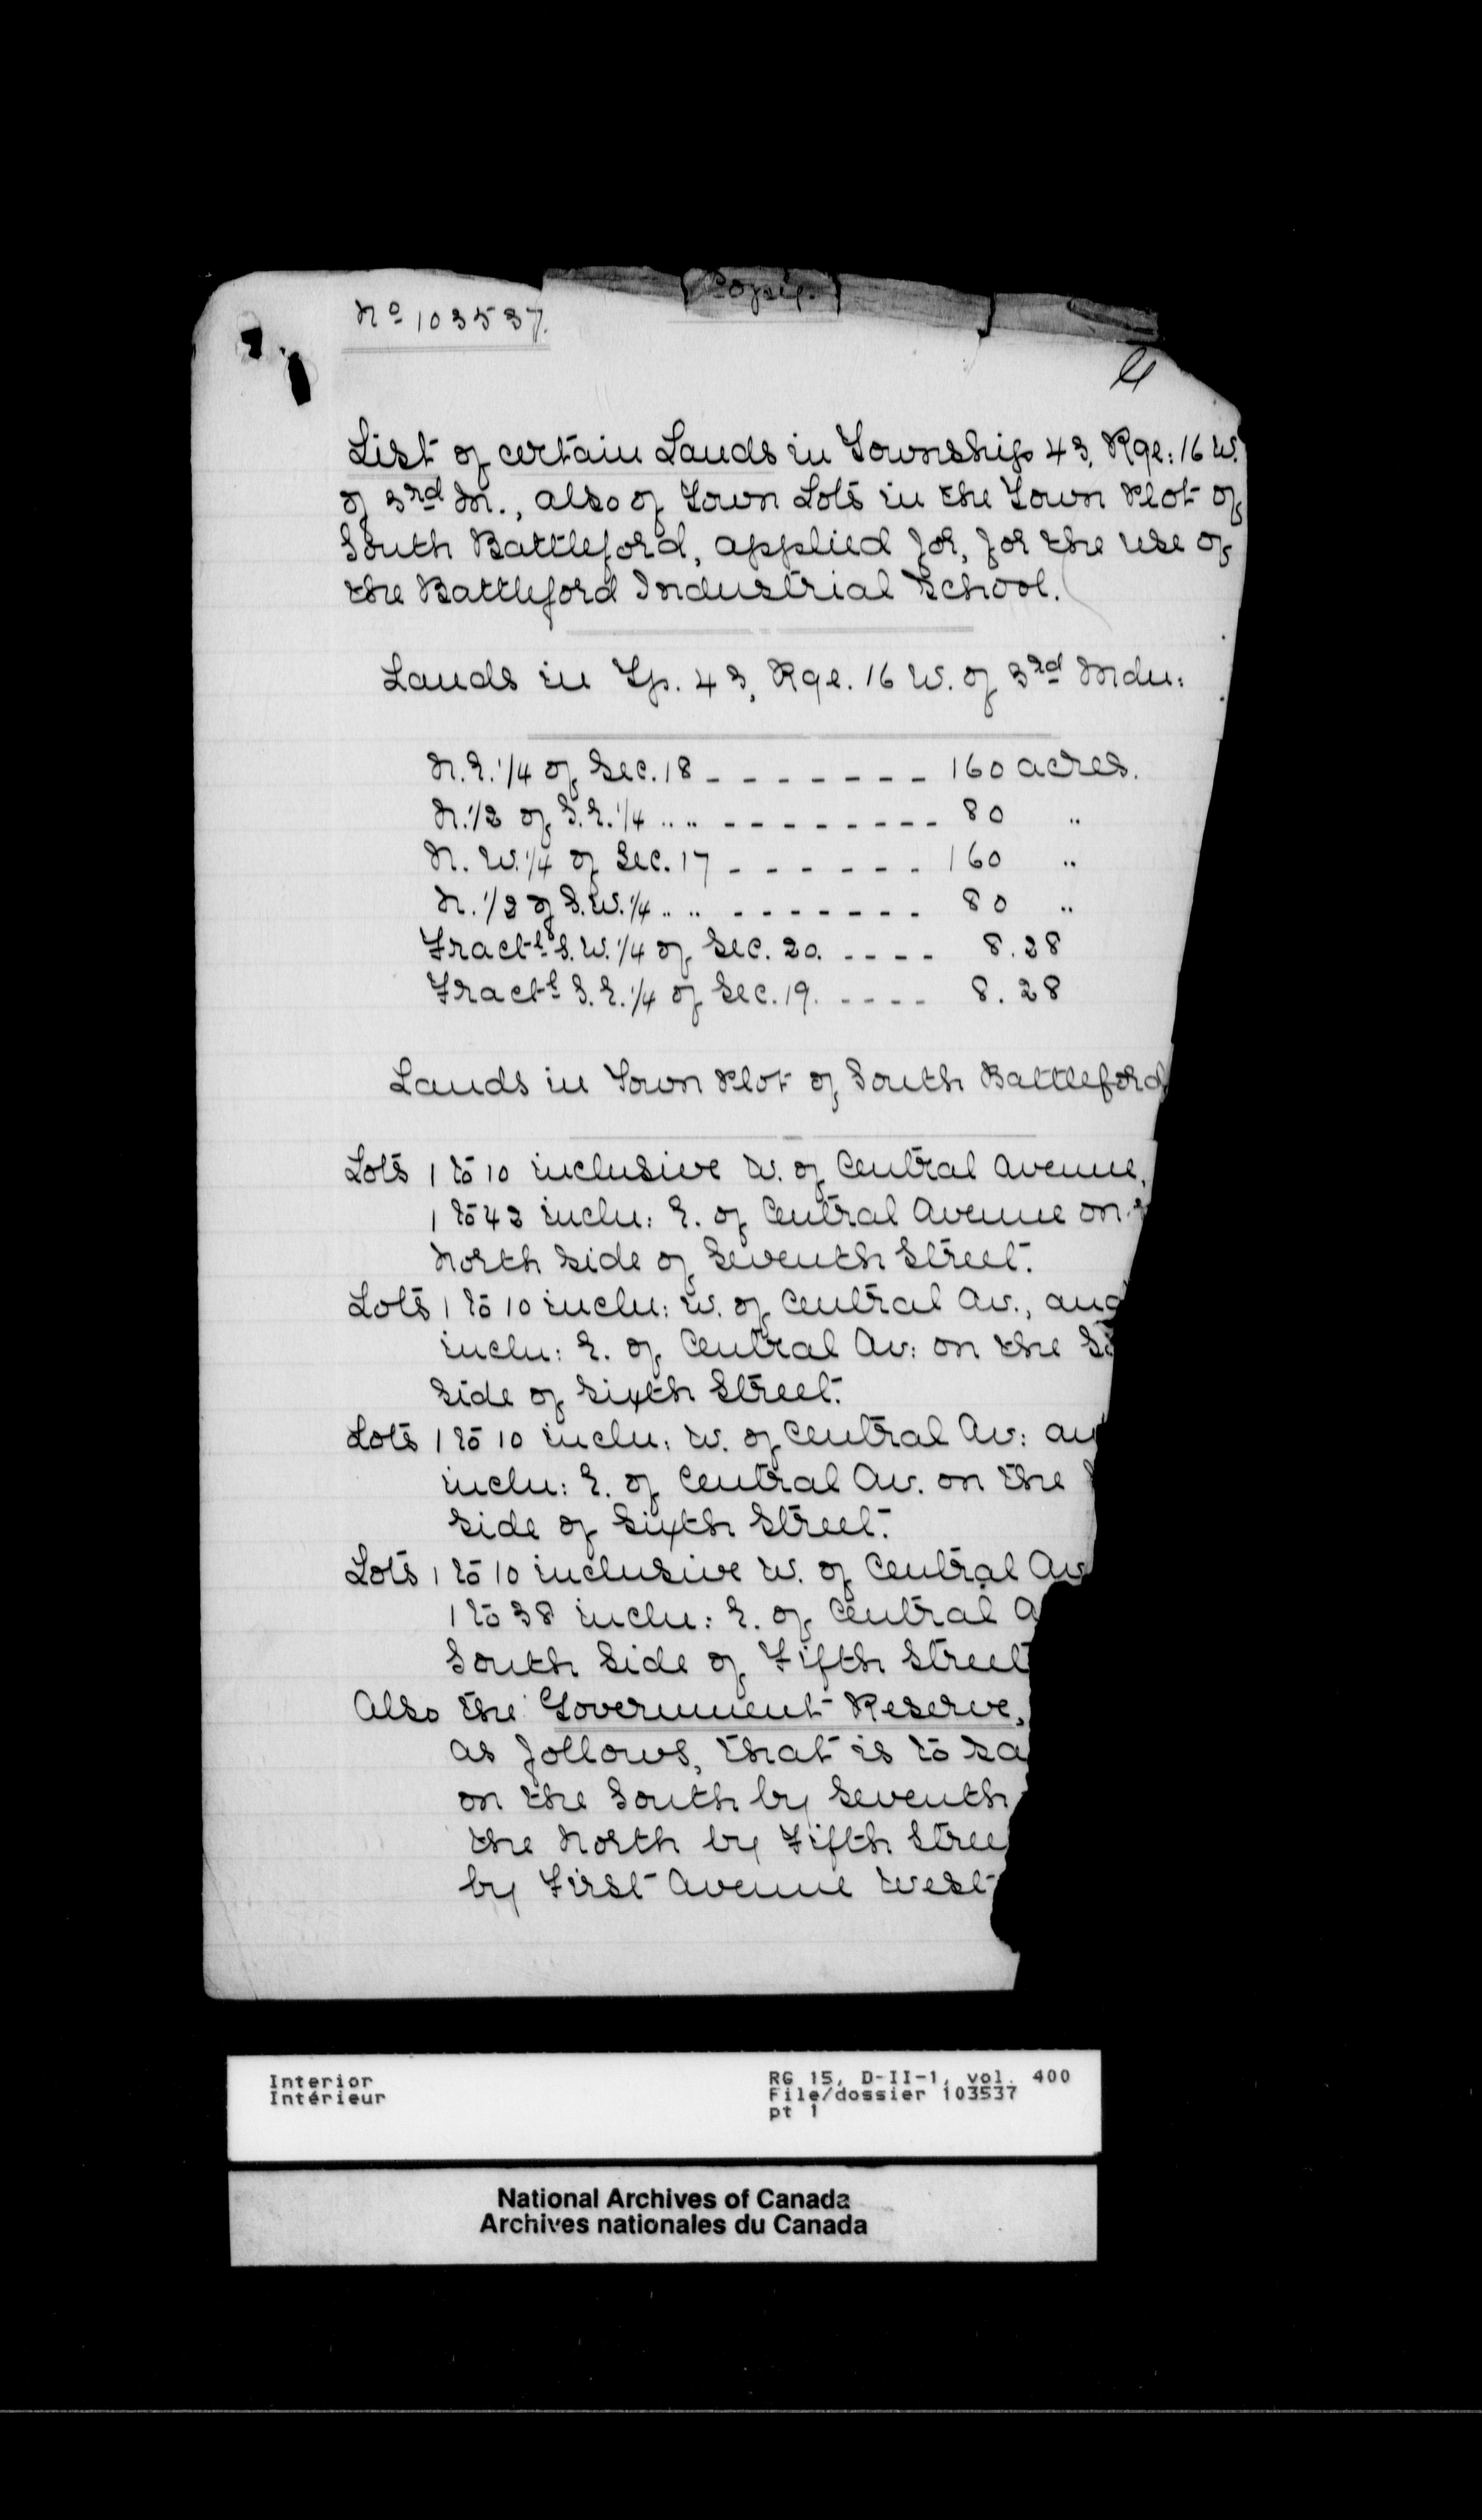 Copy.
No 103537.
List of certain Lands in Township 43, Rge: 16 W.
of 3rd M., also of Town Lots in the Town Plot of
South Battleford, applied for, for the use of
the Battleford Industrial School.
Lands in Tp. 43, Rge. 16 W. of 3rd Mdn:
N.E. 1/4 of Sec. 18 - - - - - - - 160 acres.
N. 1/2 of S.E. 1/4 .. .. - - - - - - - - - 80 ..
N. W. 1/4 of Sec. 17 - - - - - - 160 ..
N. 1/2 of S.W. 1/4 .. .. - - - - - - - 80 ..
Fractl S.W. 1/4 of Sec. 20. - - - - 8.28
Fractl S.E. 1/4 of Sec. 19. - - - - 8.28
Lands in Town Plot of South Battleford
Lots 1 to 10 inclusive W. of Central Avenue,
1 to 42 inclu: E. of Central Avenue on
North Side of Seventh Street.
Lots 1 to 10 inclu: W. of Central Av., and
inclu: E. of Central Av: on the
Side of Sixth Street.
Lots 1 to 10 inclu: W. of Central Av: an
inclu: E. of Central Av. on the
Side of Sixth Street.
Lots 1 to 10 inclusive W. of Central Av
1 to 38 inclu: E. of Central A
South Side of Fifth Street
Also the Government Reserve,
as follows, that is to sa
on the South by Seventh
the North by Fifth Stree
by First Avenue West
Interior
Intérieur
RG 15, D-II-1, vol. 400
File/dossier 103537
pt 1
National Archives of Canada
Archives nationales du Canada